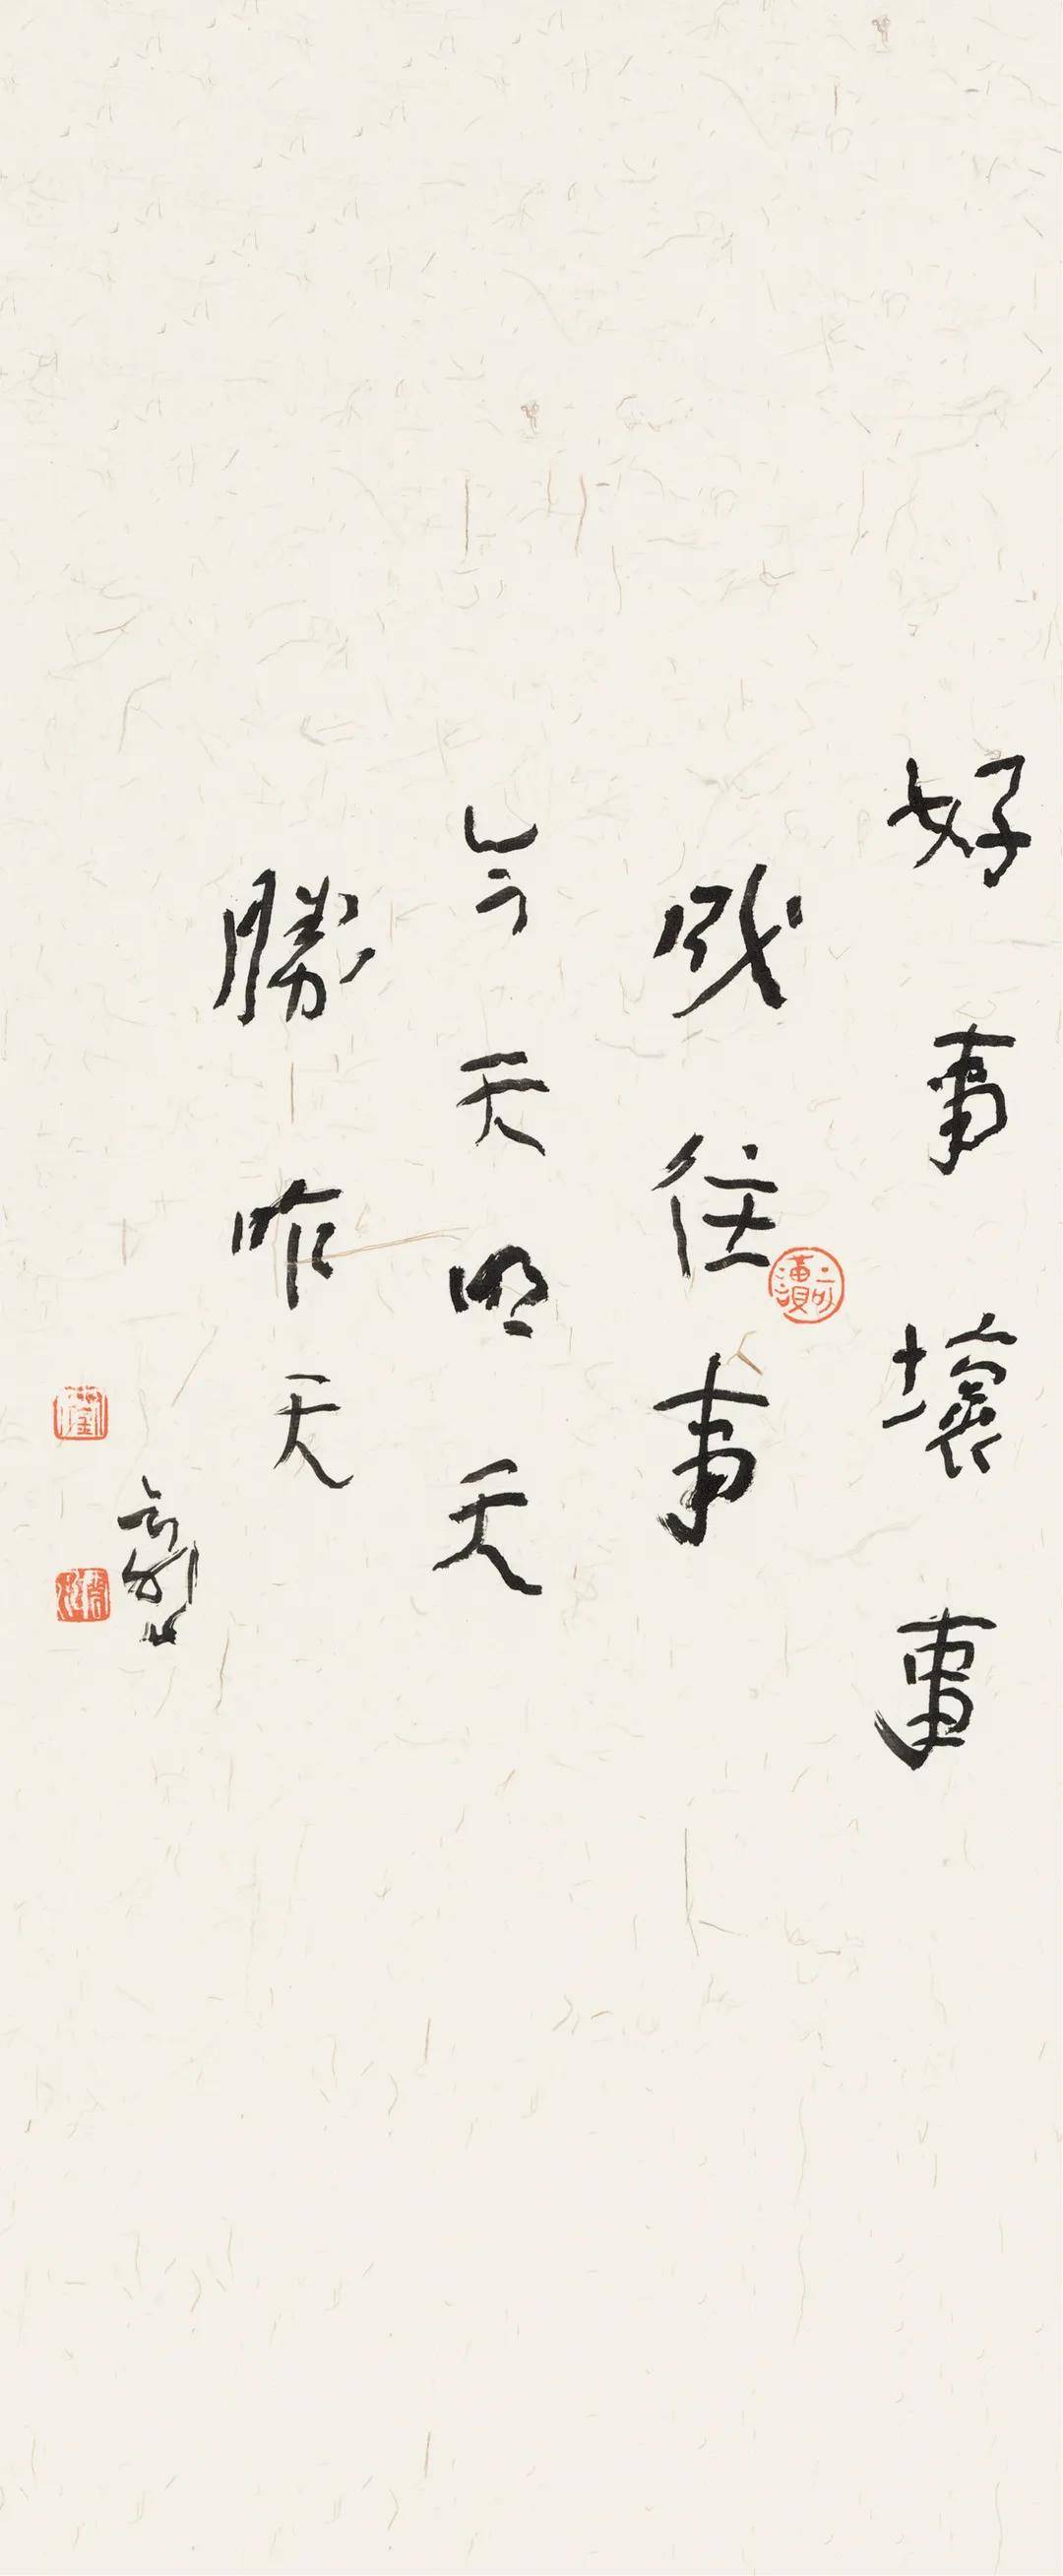 好事壞事
成往事
今天明天
勝昨天